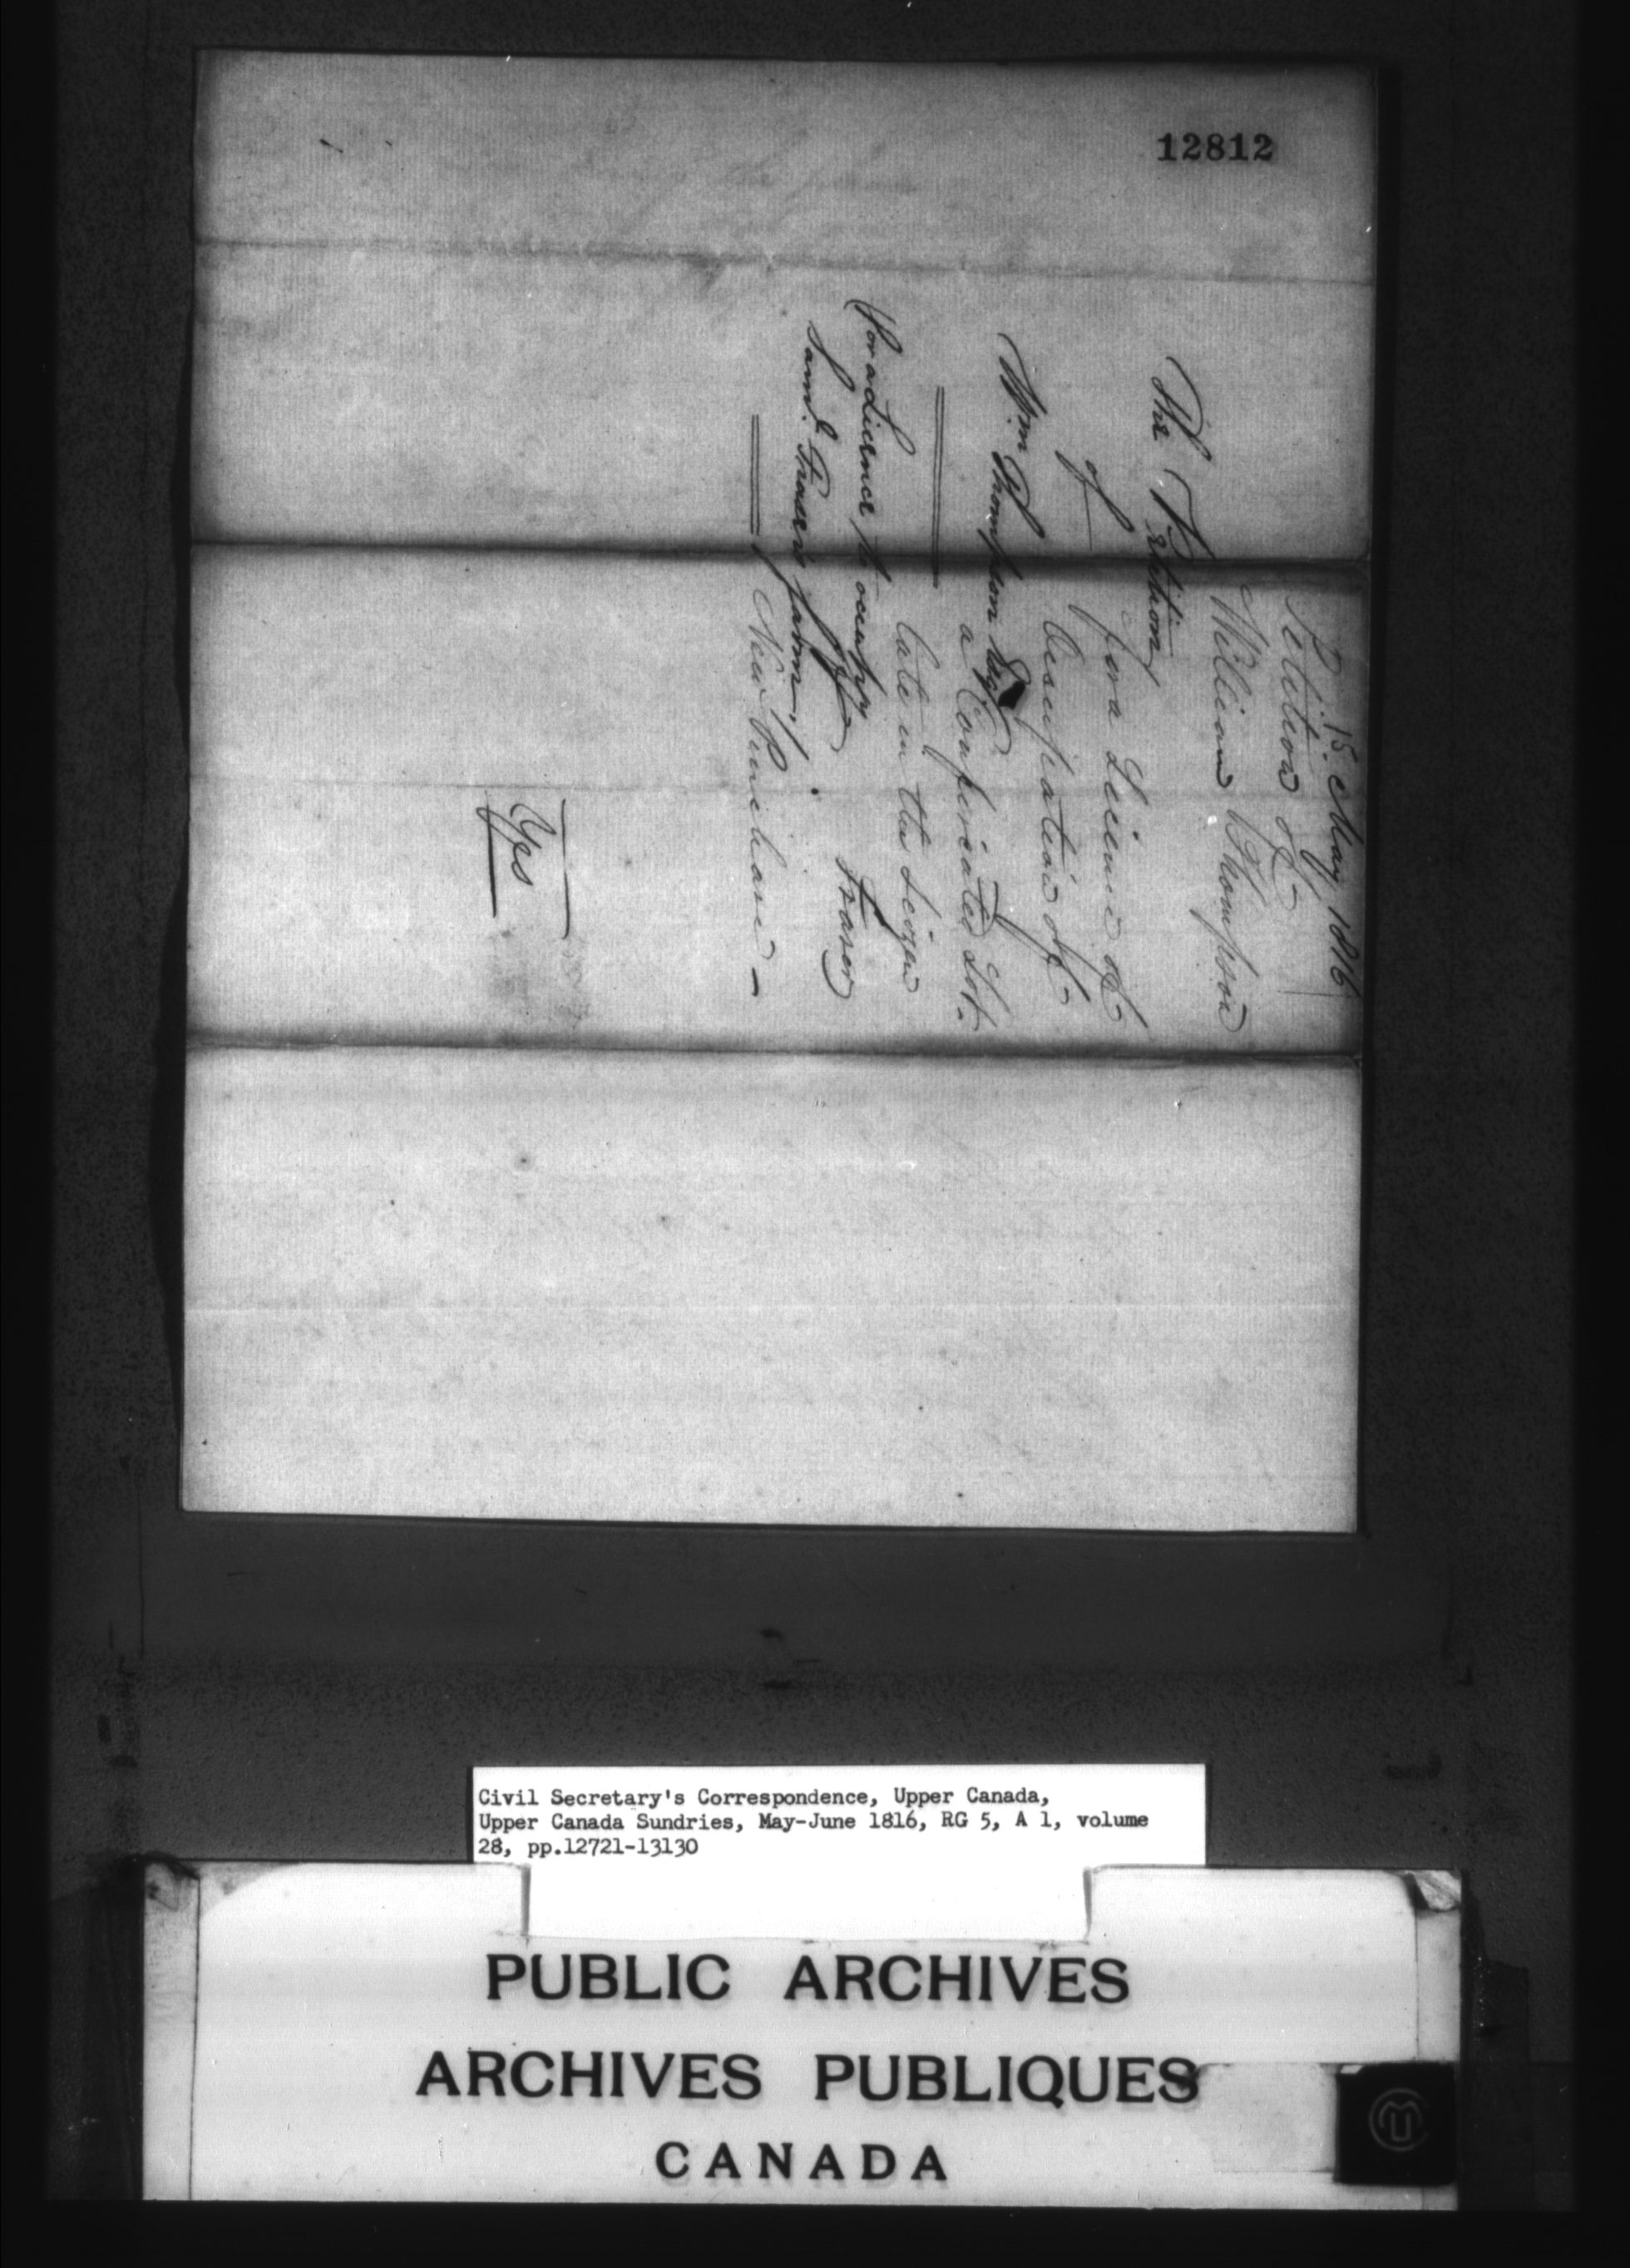 12812
15. May, 1816
Petition of
William Thompson
for a Licence of
Occupation of
a Confiscated Lot.
late in the Seizen
of Fraser
New Purchase —
The Petition
of
Wm. Thompson
for a Licence to occupy
Saml. Frasers farm,
Civil Secretary's Correspondence, Upper Canada,
Upper Canada Sundries, May-June 1816, RG 5, A 1, volume
28, pp.12721-13130
PUBLIC ARCHIVES
ARCHIVES PUBLIQUES
CANADA